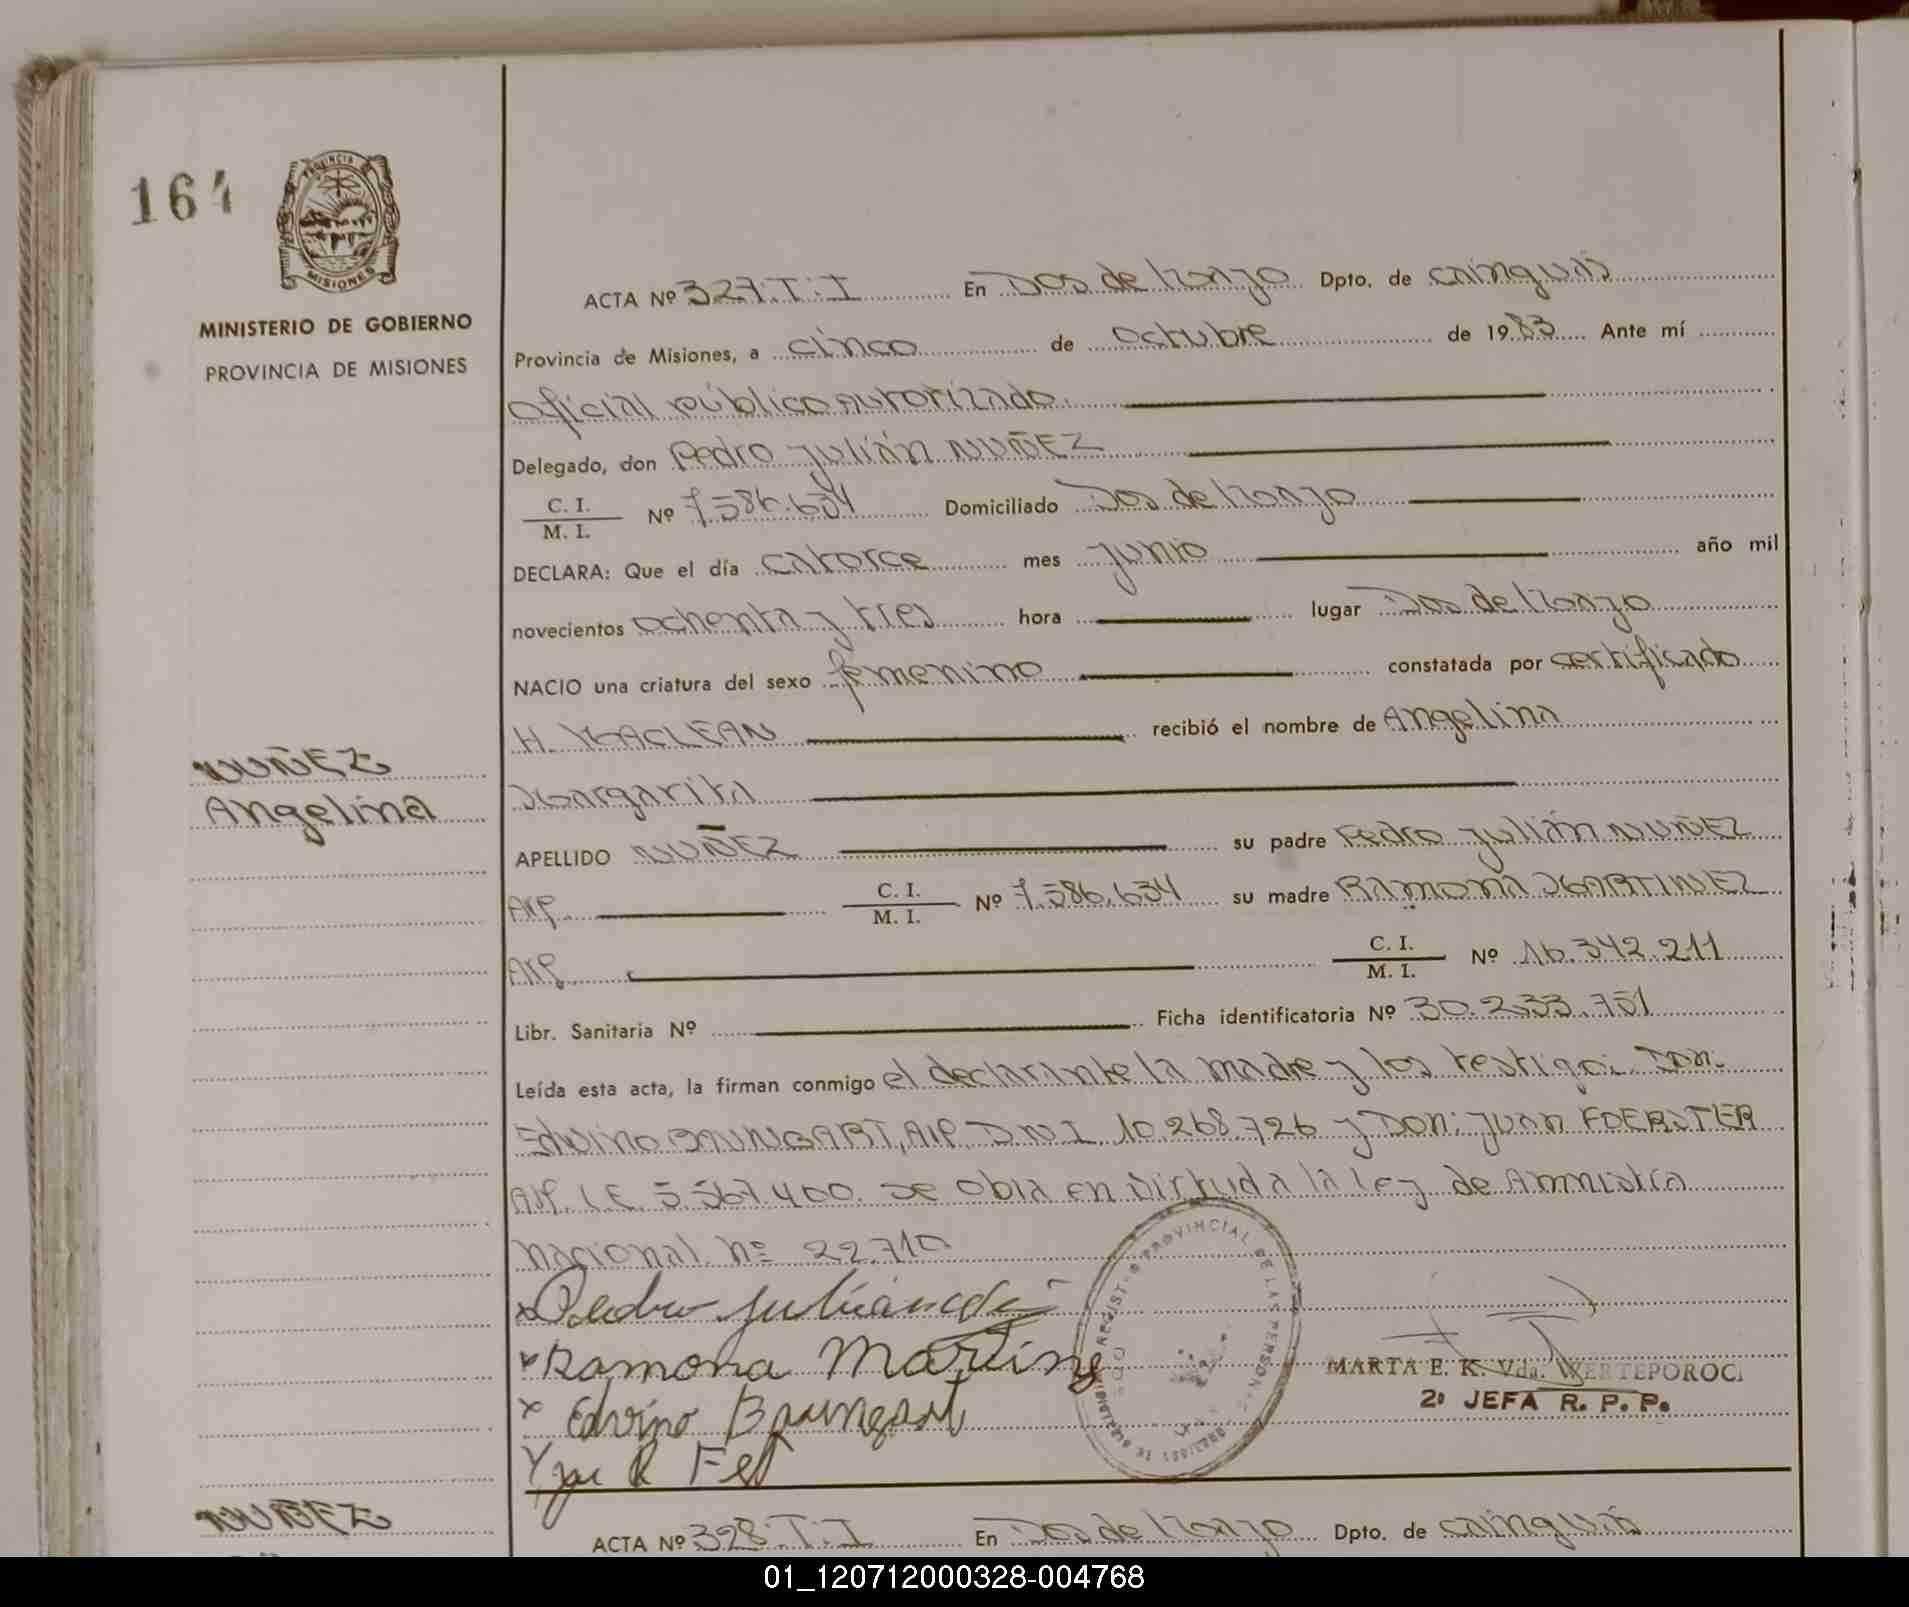 164
PROVINCIA DE
MISIONES
MINISTERIO DE GOBIERNO
PROVINCIA DE MISIONES
ACTA Nº 327.T.I En Dos de Mayo Dpto. de Cainguás
Provincia de Misiones, a cinco de octubre de 1983 Ante mí
oficial público autorizado.
Delegado, don Pedro Julián NUÑEZ
C. I.
M. I. Nº 7.586.634 Domiciliado Dos de Mayo
DECLARA: Que el día catorce mes junio año mil
novecientos ochenta y tres hora lugar Dos de Mayo
NACIO una criatura del sexo femenino constatada por certificado
H. MACLEAN recibió el nombre de Angelina
NUÑEZ
Angelina
Margarita
APELLIDO NUÑEZ su padre Pedro Julián NUÑEZ
Arg. C. I.
M. I. Nº 7.586.634 su madre RAMONA MARTINEZ
Arg. C. I.
M. I. Nº 16.342.211
Libr. Sanitaria Nº Ficha identificatoria Nº 30.233.751
Leída esta acta, la firman conmigo el declarante la madre y los testigo: Don:
Edvino BAUNGART, Arg. D N I. 10.268.726 y Don: Juan FOERSTER
Arg. L.E. 5.567.400. se obla en virtud a la Ley de Amnistia
Nacional. Nº 22.710
x Pedro Julian
x Ramona Martine
x Edvino Baungart
REGISTRO PROVINCIAL DE LAS PERSONAS
MARTA E. K. Vda. WERTEPOROC
2º JEFA R. P. P.
NUÑEZ
ACTA Nº 328.T.I En Dos de Mayo Dpto. de Cainguás
01_120712000328-004768